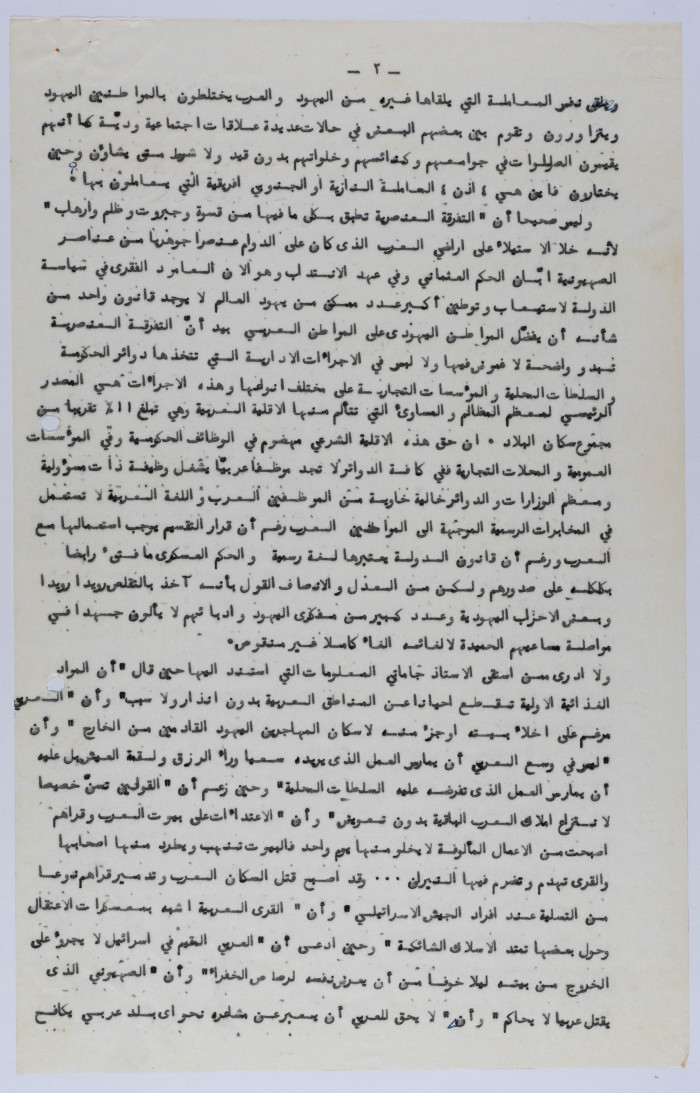 — ٢ —
ويلقى نفس المعاملة التي يلقاها غيره من اليهود والعرب يختلطون بالمواطنين اليهود
ويتزاورون وتقوم بين بعضهم البعض في حالات عديدة علاقات اجتماعية وديّة كما أنهم
يقيمون الصلوات في جوامعهم وكنائسهم وخلواتهم بدون قيد ولا شرط متى يشاؤن وحين
يختارون فاين هي ، اذن ، المعاملة النازية او الجنوبي افريقية التي يعاملون بها ؟
وليس صحيحا أن " التفرقة العنصرية تطبق بكل ما فيها من قسوة وجبروت وظلم وارهاب "
لأنه خلا الاستيلاء على اراضي العرب الذى كان على الدوام عنصرا جوهريا من عناصر
الصهيونية ابّان الحكم العثماني وفي عهد الانتداب وهو الان العامود الفقرى في سياسة
الدولة لاستيعاب وتوطين أكبر عدد ممكن من يهود العالم لا يوجد قانون واحد من
شأنه أن يفضّل المواطن اليهودى على المواطن العربي بيد أنّ التفرقة العنصرية
تبدو واضحة لا غموض فيها ولا لبس في الاجراءات الادارية التي تتخذها دوائر الحكومة
والسلطات المحلية والمؤسسات التجارية على مختلف انواعها وهذه الاجراءات هي المصدر
الرئيسي لمعظم المظالم والمساوئ التي تتألم منها الاقلية العربية وهي تبلغ ١١٪ تقريبا من
مجموع سكان البلاد ٠ ان حق هذه الاقلية الشرعي مهضوم في الوظائف الحكومية وفي المؤسسات
العمومية والمحلات التجارية ففي كافة الدوائر لا تجد موظفا عربيّا يشغل وظيفة ذات مسؤولية
ومعظم الوزارات والدوائر خالية خاوية من الموظفين العرب واللغة العربية لا تستعمل
في المخابرات الرسمية الموجّهة الى المواطنين العرب رغم أن قرار التقسيم يوجب استعمالها مع
العرب ورغم أن قانون الدولة يعتبرها لغة رسمية والحكم العسكرى ما فتىء رابضا
بكلكله على صدورهم ولكن من العدل والانصاف القول بأنه آخذ بالتقلص رويدا رويدا
وبعض الاحزاب اليهودية وعدد كبير من مفكرى اليهود وادبائهم لا يألون جهدا في
مواصلة مساعيهم الحميدة لالغائه الغاء كاملا غير منقوص ٠
ولا ادرى ممن استقى الاستاذ جاماتي المعلومات التي استند اليها حين قال " أن المواد
الغذائية الاولية تقطع احيانا عن المناطق العربية بدون انذار ولا سبب " وأن " العربي
مرغم على اخلاء بيته او جزء منه لاسكان المهاجرين اليهود القادمين من الخارج " وأن
" ليس في وسع العربي أن يمارس العمل الذى يريده سعيا وراء الرزق ولقمة العيش بل عليه
أن يمارس العمل الذى تفرضه عليه السلطات المحلية " وحين زعم أن " القوانين تسنّ خصيصا
لانتزاع املاك العرب الباقية بدون تعويض " وأن " الاعتداءات على بيوت العرب وقراهم
اصبحت من الاعمال المألوفة لا يخلو منها يوم واحد فالبيوت تنهب ويطرد منها اصحابها
والقرى تهدم وتضرم فيها النيران ٠٠٠ وقد أصبح قتل السكان العرب وتدمير قراهم نوعا
من التسلية عند افراد الجيش الاسرائيلي " وأن " القرى العربية اشبه بمعسكرات الاعتقال
وحول بعضها تمتد الاسلاك الشائكة " وحين ادعى أن " العربي المقيم في اسرائيل لا يجرؤ على
الخروج من بيته ليلا خوفا من أن يعرض نفسه لرصاص الخفراء " وأن " الصهيوني الذى
يقتل عربيا لا يحاكم " وأن " لا يحق للعربي أن يعبر عن مشاعره نحو اى بلد عربي يكافح